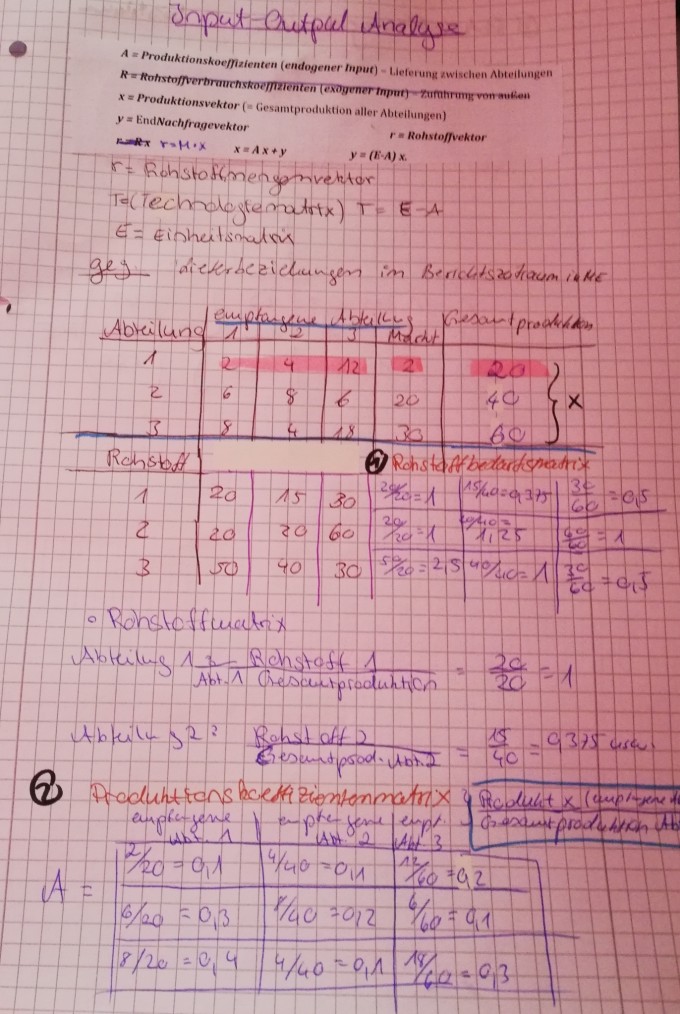 Input-Output Analyse
A = Produktionskoeffizienten (endogener Input) – Lieferung zwischen Abteilungen
R = Rohstoffverbrauchskoeffizienten (exogener Input) – Zuführung von außen
x = Produktionsvektor (= Gesamtproduktion aller Abteilungen)
y = EndNachfragevektor r = Rohstoffvektor
r = Rx r=M·x x = A x + y y = (E-A) x.
r = Rohstoffmengenvektor
T=(Technologiematrix) T = E-A
E = Einheitsmatrix
geg. Lieferbeziehungen im Berichtszeitraum in ME
empfangene Abteilung Gesamtproduktion
Abteilung 1 2 3 Markt
1 2 4 12 2 20
2 6 8 6 20 40 x
3 8 4 18 30 60
Rohstoff 1 Rohstoffbedarfsmatrix
1 20 15 30 20/20=1 15/40=0,375 30/60=0,5
2 20 20 60 20/20=1 1,25 60/60=1
3 50 40 30 50/20=2,5 40/40=1 30/60=0,5
° Rohstoffmatrix
Abteilung 1 Rohstoff 1 / Abt. 1 Gesamtproduktion = 20/20 = 1
Abteilung 2: Rohstoff 2 / Gesamtprod. Abt. 2 = 15/40 = 0,375 usw.
2 Produktionskoeffizientenmatrix Produkt x (empfangene
Gesamtproduktion
empfangene Abt. 1 empfangene Abt 2 empf. Abt 3
A = 2/20 = 0,1 4/40 = 0,1 12/60 = 0,2
6/20 = 0,3 8/40 = 0,2 6/60 = 0,1
8/20 = 0,4 4/40 = 0,1 18/60 = 0,3